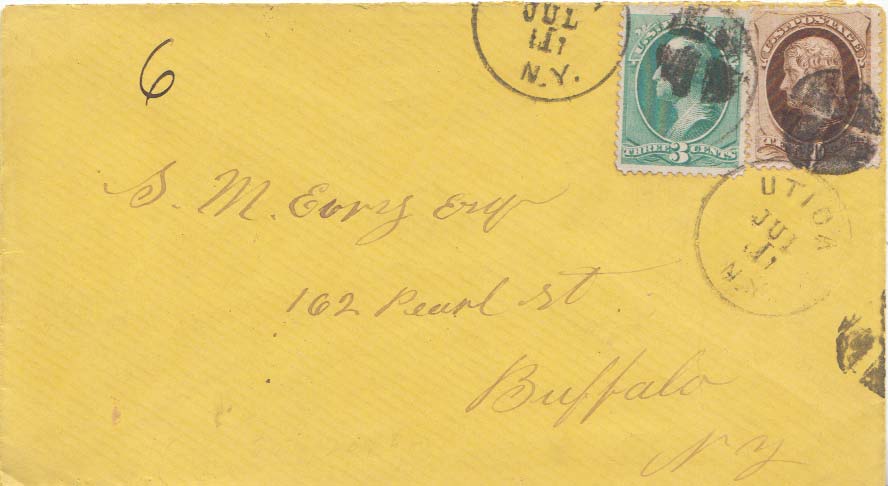 JUL
11
N.Y.
U.S. POSTAGE
THREE 3 CENTS
6
UTICA
JUL
11
N.Y.
S. M. Evry Esqr
162 Pearl St
Buffalo
N Y